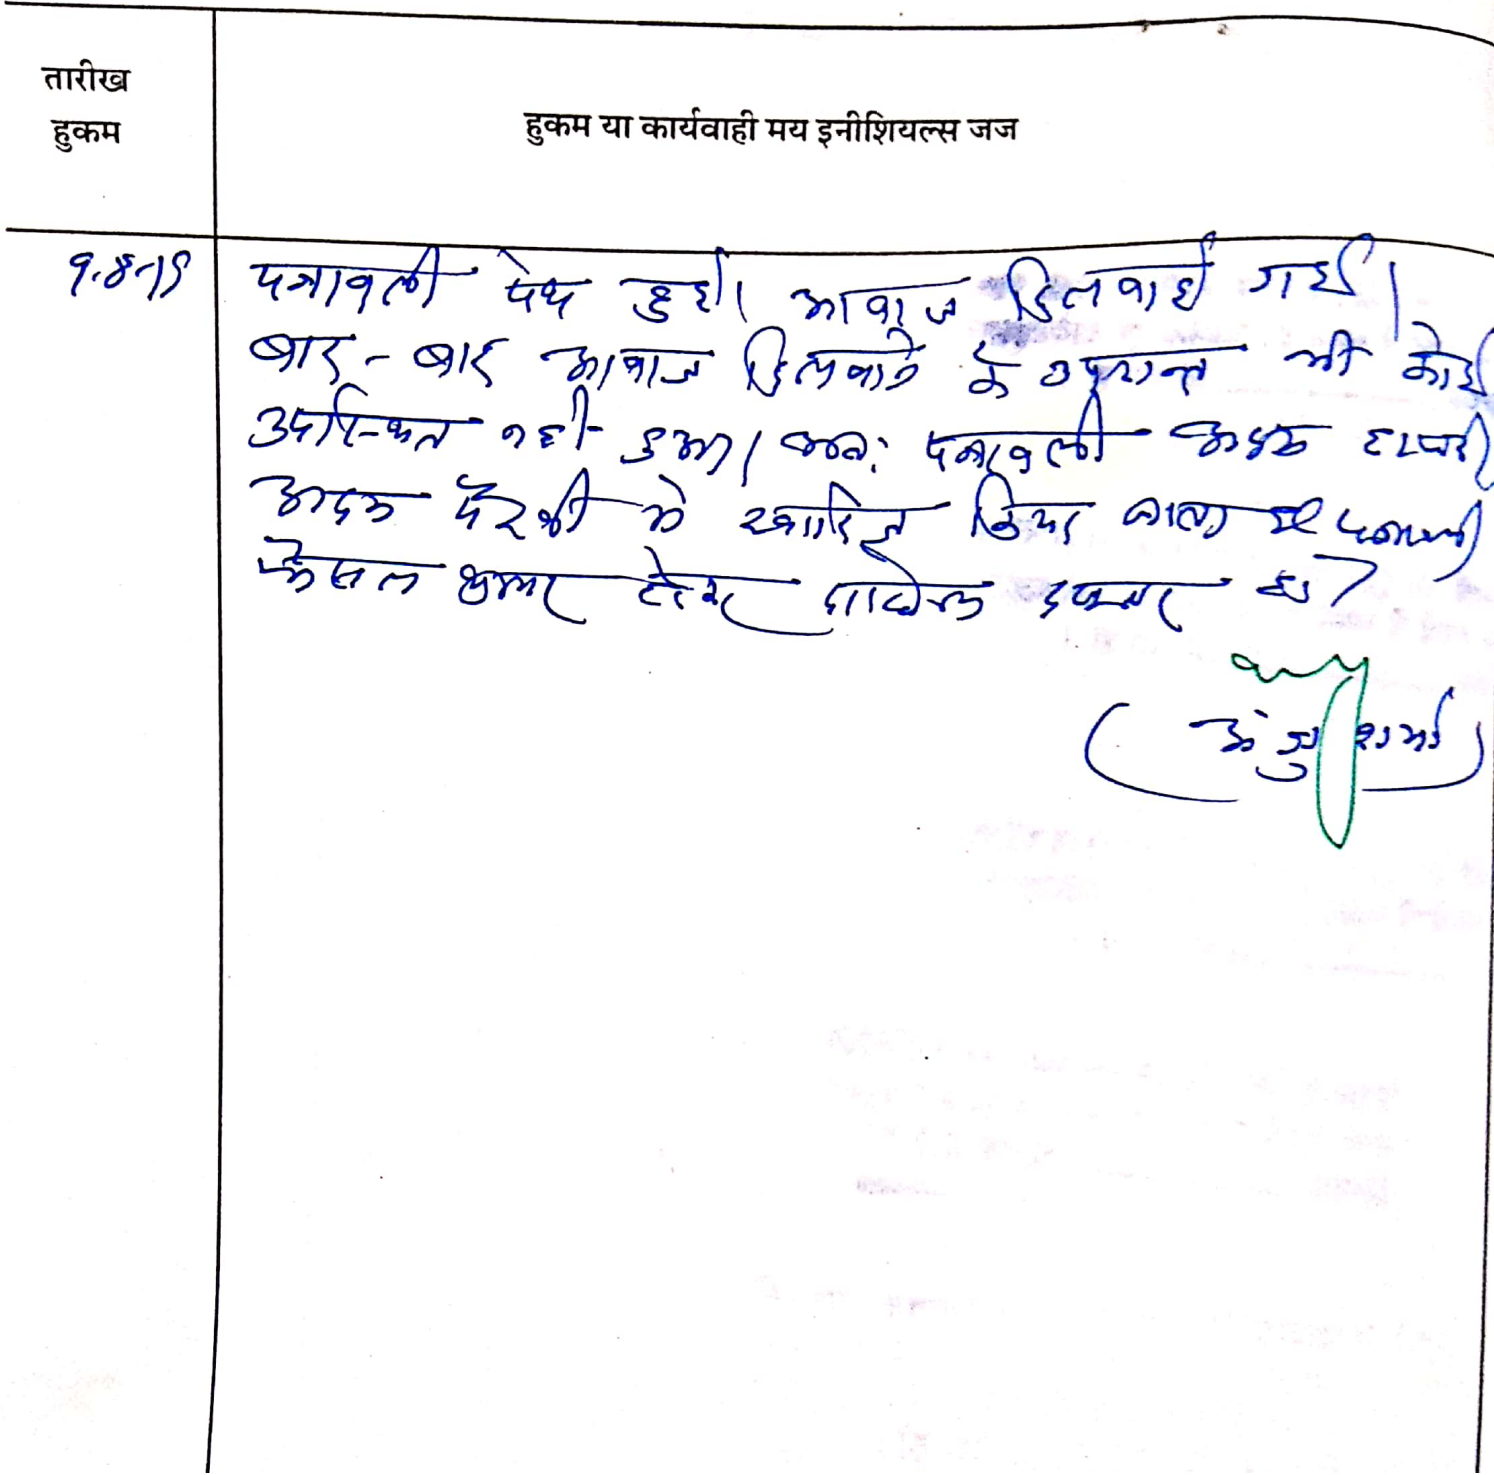 तारीख
हुकम
हुकम या कार्यवाही मय इनीशियल्स जज
9.8.19
पत्रावली पेश हुई। आवाज दिलवाई गई।
बार-बार आवाज दिलवाने के उपरान्त भी कोई
उपस्थित नहीं हुआ। अतः पत्रावली अदम हाजरी
अदम पैरवी में खारिज किया जाता है पत्रावली
फैसल शुमार होकर दाखिल दफ्तर हो
(अंजु शर्मा)